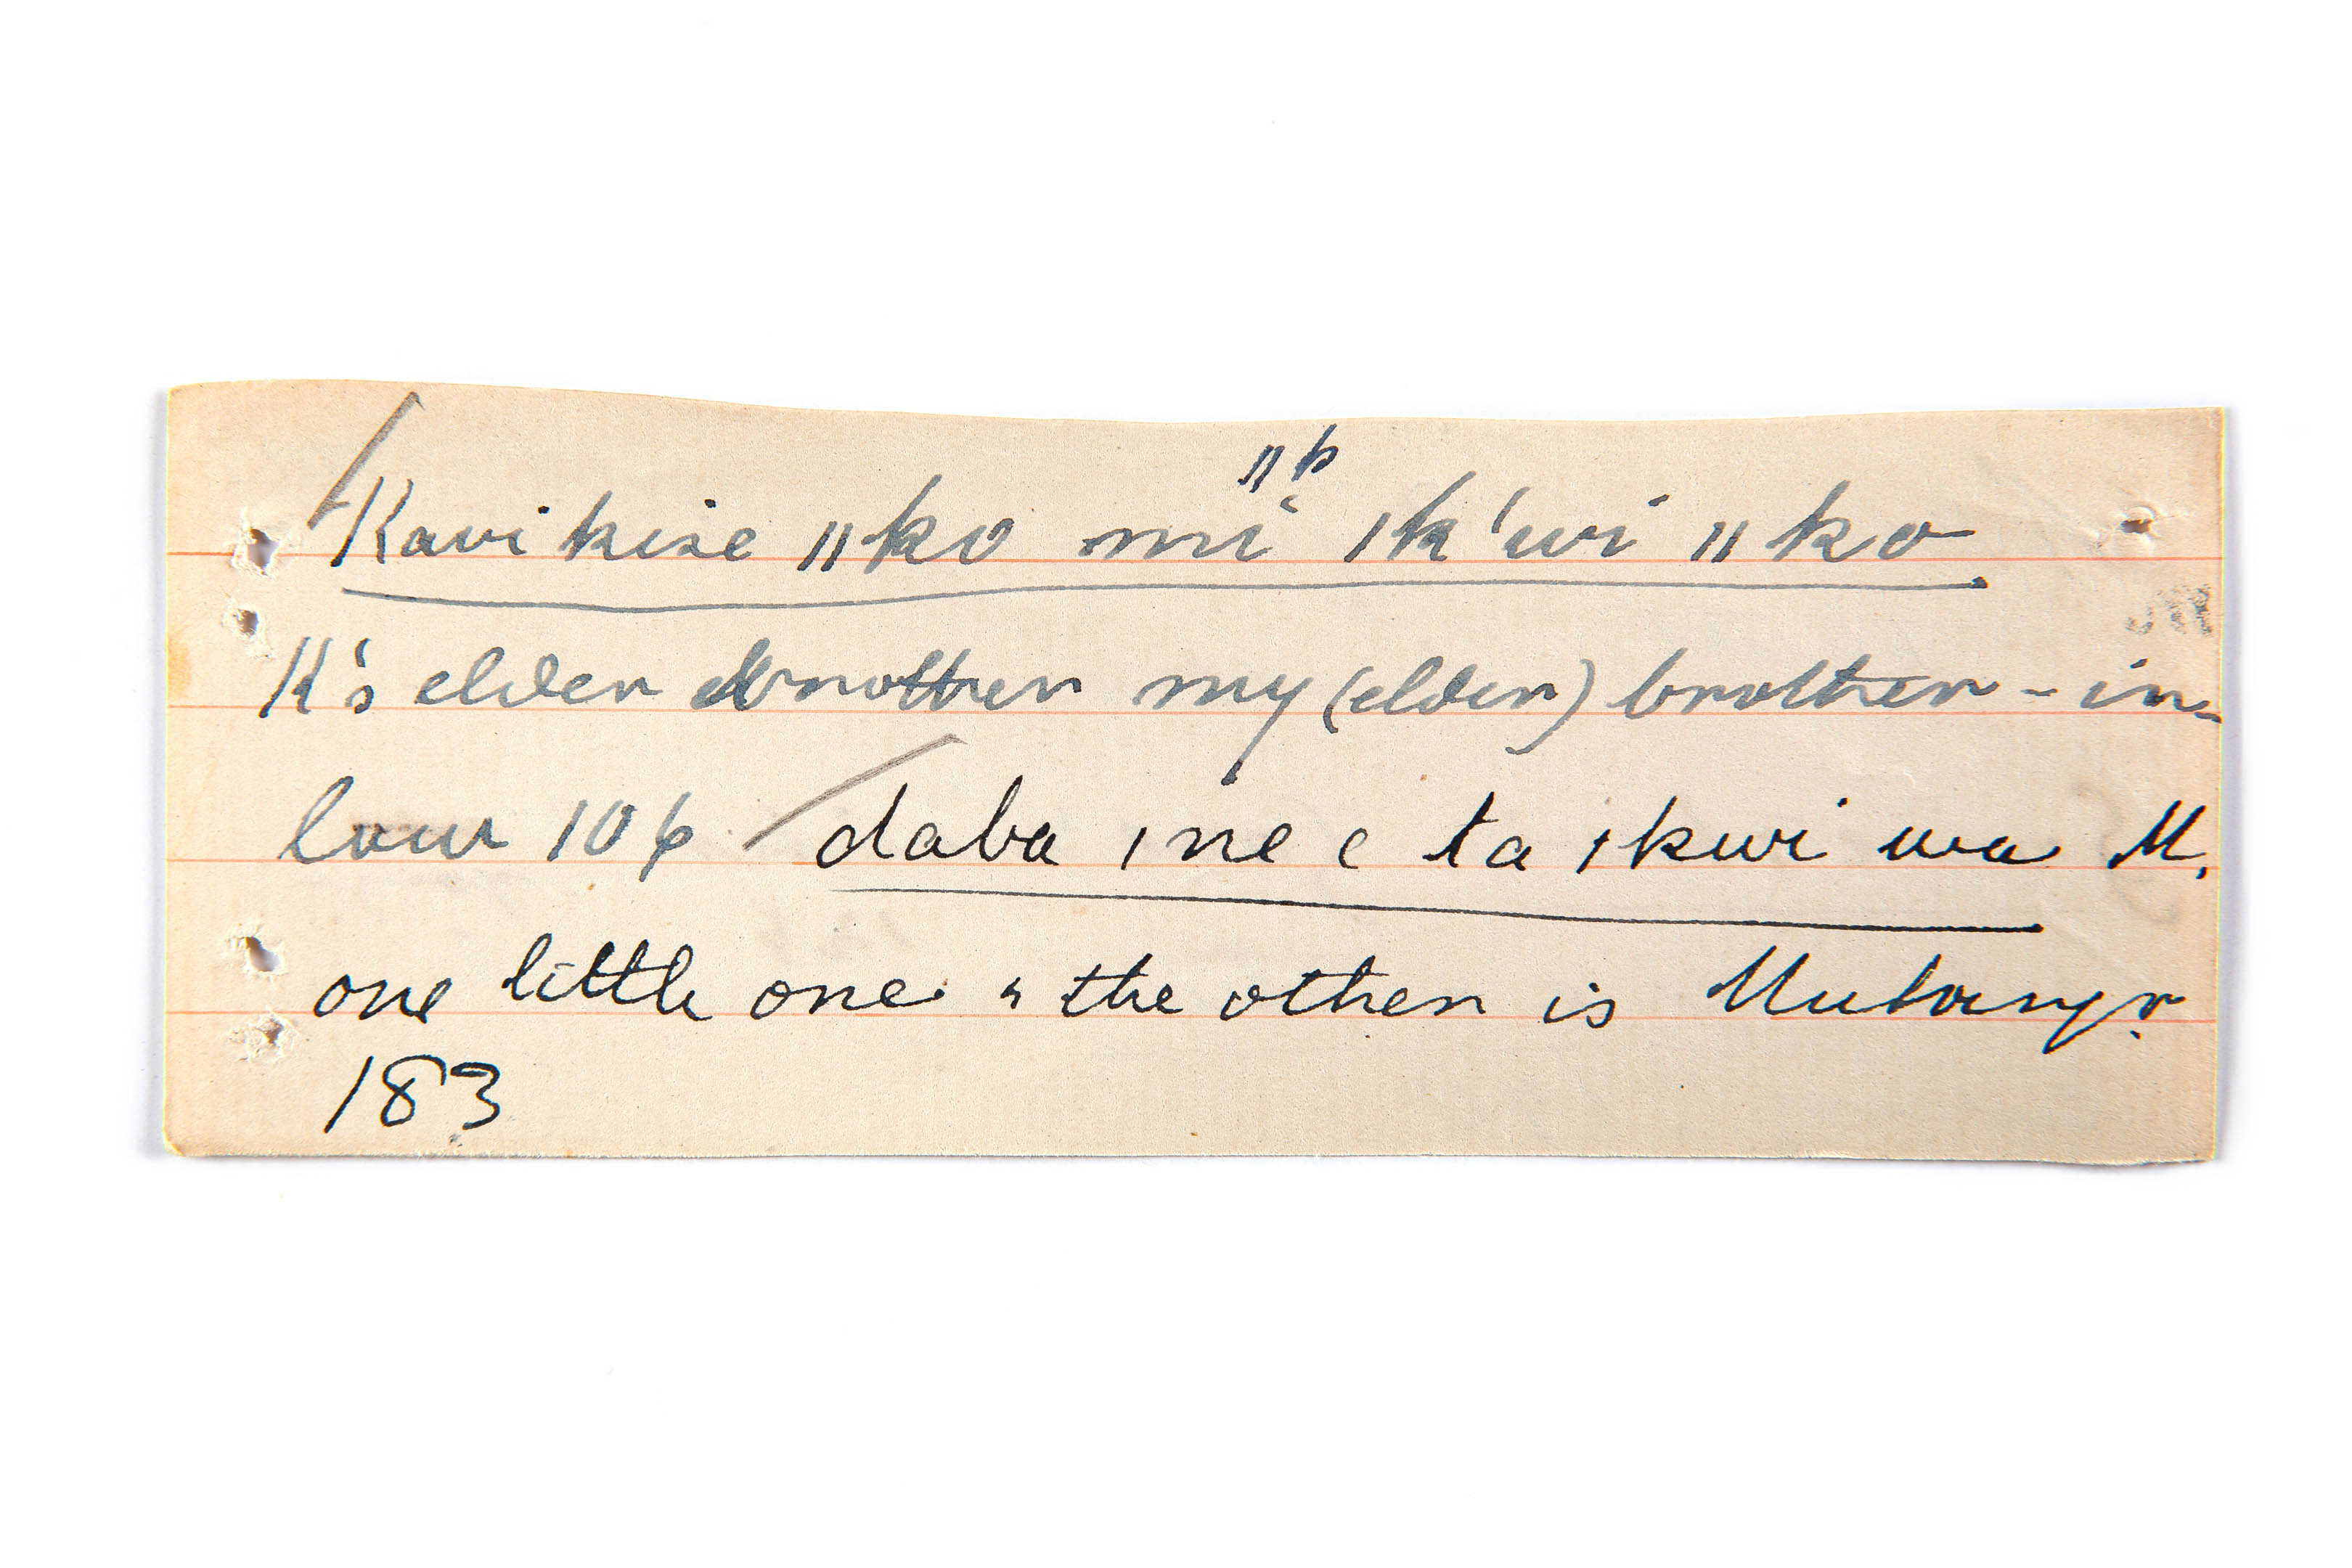 ǁþ
Kavikise ǁko mi ǀk'wi ǁko
K's elder brother my (elder) brother-in-
law 106 daba ǀne e ta ǀkwi wa M.
one little one & the other is
183